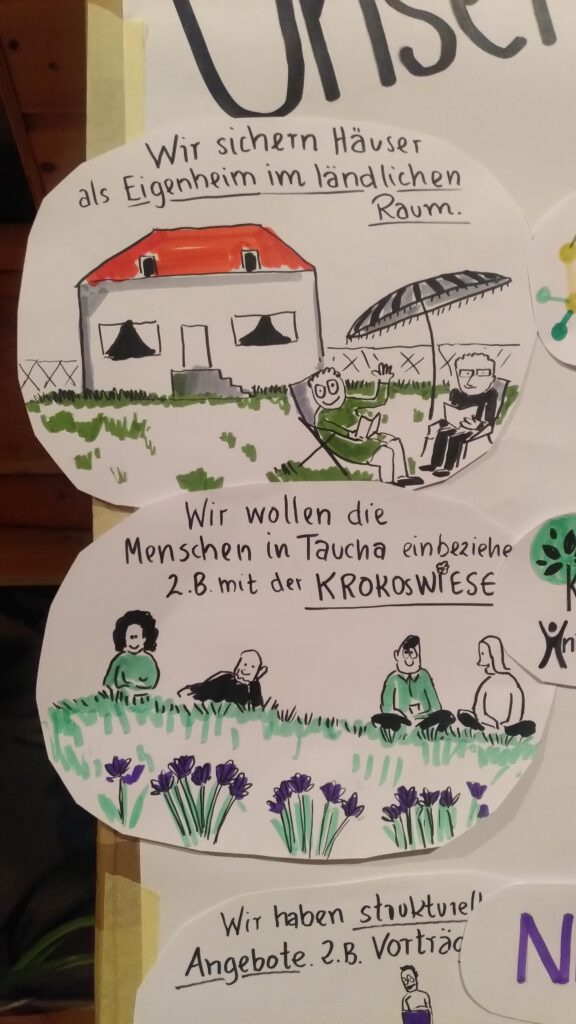 Unser
Wir sichern Häuser
als Eigenheim im ländlichen
Raum.
Wir wollen die
Menschen in Taucha einbeziehe
z.B. mit der KROKOSWIESE
Wir haben strukturell
Angebote. z.B. Vorträg